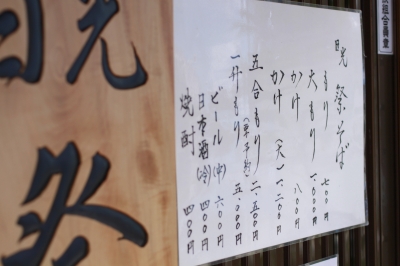 暁祭そば
もり 七〇〇円
大もり 一、〇〇〇円
かけ 八〇〇円
かけ(天) 一、二〇〇円
五合もり 二、五〇〇円
一升もり 五、〇〇〇円
ビール(中) 六〇〇円
日本酒(冷) 四〇〇円
焼酎 四〇〇円